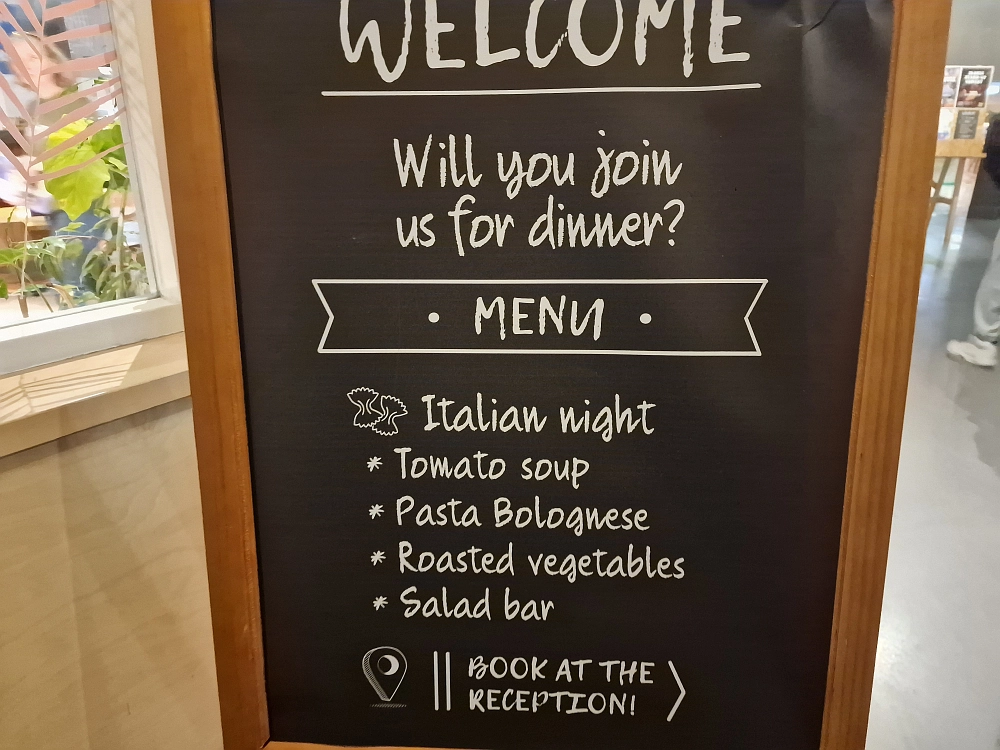 WELCOME
Will you join
us for dinner?
• MENU •
Italian night
* Tomato soup
* Pasta Bolognese
* Roasted vegetables
* Salad bar
BOOK AT THE
RECEPTION!